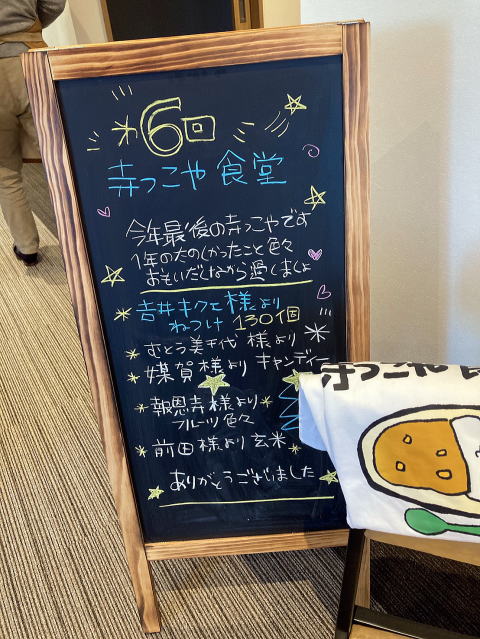 オ6回
寺っこや食堂
今年最後の寺っこやです
1年のたのしかったこと色々
おもいだしながら過しましょ
吉井キクェ様より
ねつけ 130個
むとう美千代 様より
媒賀様より キャンディー
報恩寺様より
フルーツ色々
前田様より玄米
ありがとうございました
寺っこや食